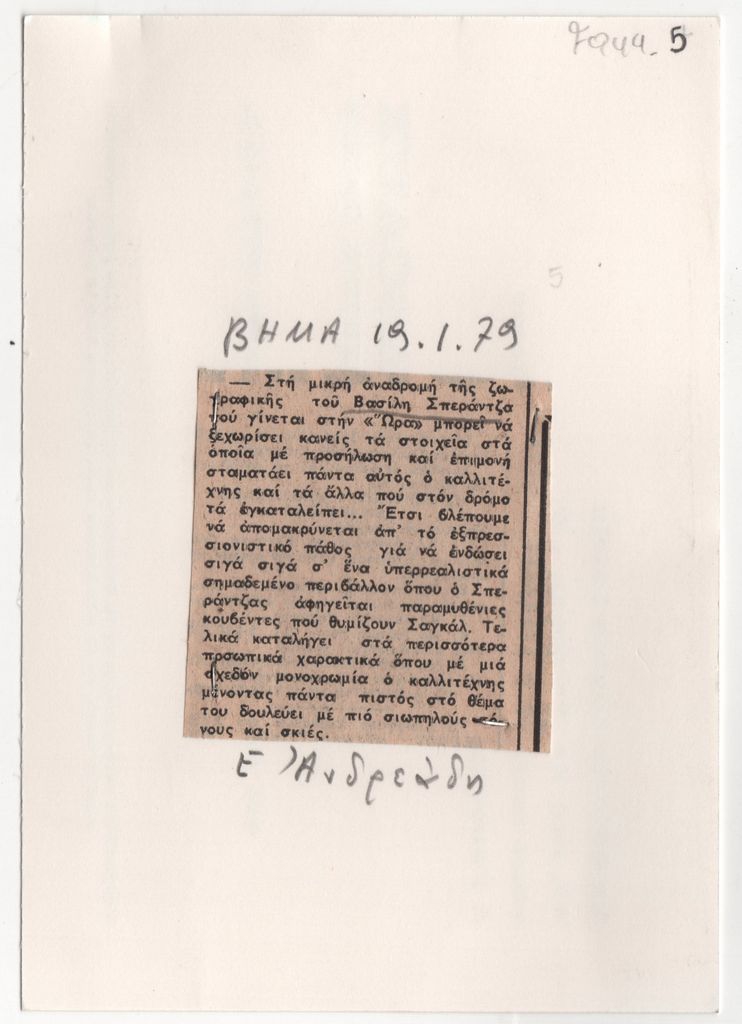 5
5
ΒΗΜΑ 19.1.79
— Στή μικρή ἀναδρομή τῆς ζω-
γραφικῆς τοῦ Βασίλη Σπεράντζα
πού γίνεται στήν «Ὥρα» μπορεῖ νά
ξεχωρίσει κανείς τά στοιχεῖα στά
ὁποῖα μέ προσήλωση καί ἐπιμονή
σταματάει πάντα αὐτός ὁ καλλιτέ-
χνης καί τά ἄλλα πού στόν δρόμο
τά ἐγκαταλείπει... Ἔτσι βλέπουμε
νά ἀπομακρύνεται ἀπ' τό ἐξπρεσ-
σιονιστικό πάθος γιά νά ἐνδώσει
σιγά σιγά σ' ἕνα ὑπερρεαλιστικά
σημαδεμένο περιβάλλον ὅπου ὁ Σπε-
ράντζας ἀφηγεῖται παραμυθένιες
κουβέντες πού θυμίζουν Σαγκάλ. Τε-
λικά καταλήγει στά περισσότερα
προσωπικά χαρακτικά ὅπου μέ μιά
σχεδόν μονοχρωμία ὁ καλλιτέχνης
μένοντας πάντα πιστός στό θέμα
του δουλεύει μέ πιό σιωπηλούς τό-
νους καί σκιές.
Ε Ἀνδρεάδη